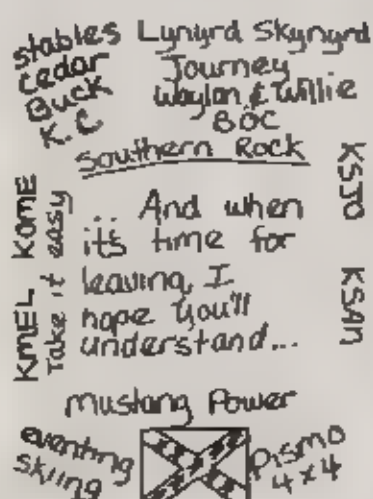 stables
Cedar
Buck
K.C
Lynyrd Skynyrd
Journey
Waylon & Willie
BÖC
Southern Rock
KSJO
KSAN
KOME
KMEL
Take it easy
... And when
it's time for
leaving, I
hope you'll
understand...
mustang Power
eventing
skiing
Pismo
4x4